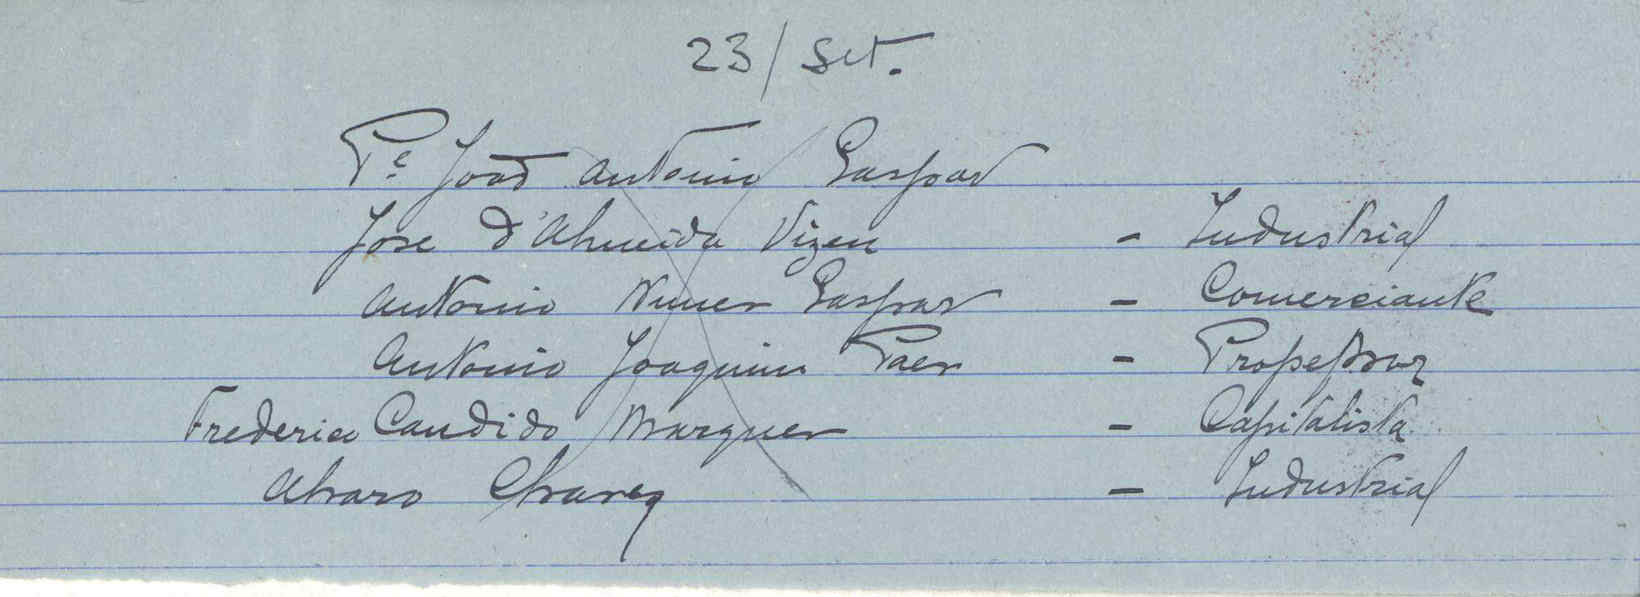 23/Set.
Pe João Antonio Gaspar
Jose d'Almeida Vizeu - Industrial
Antonio Nunes Gaspar - Comerciante
Antonio Joaquim Paes - Professor
Frederico Candido Marques - Capitalista
Alvaro Chaves - Industrial